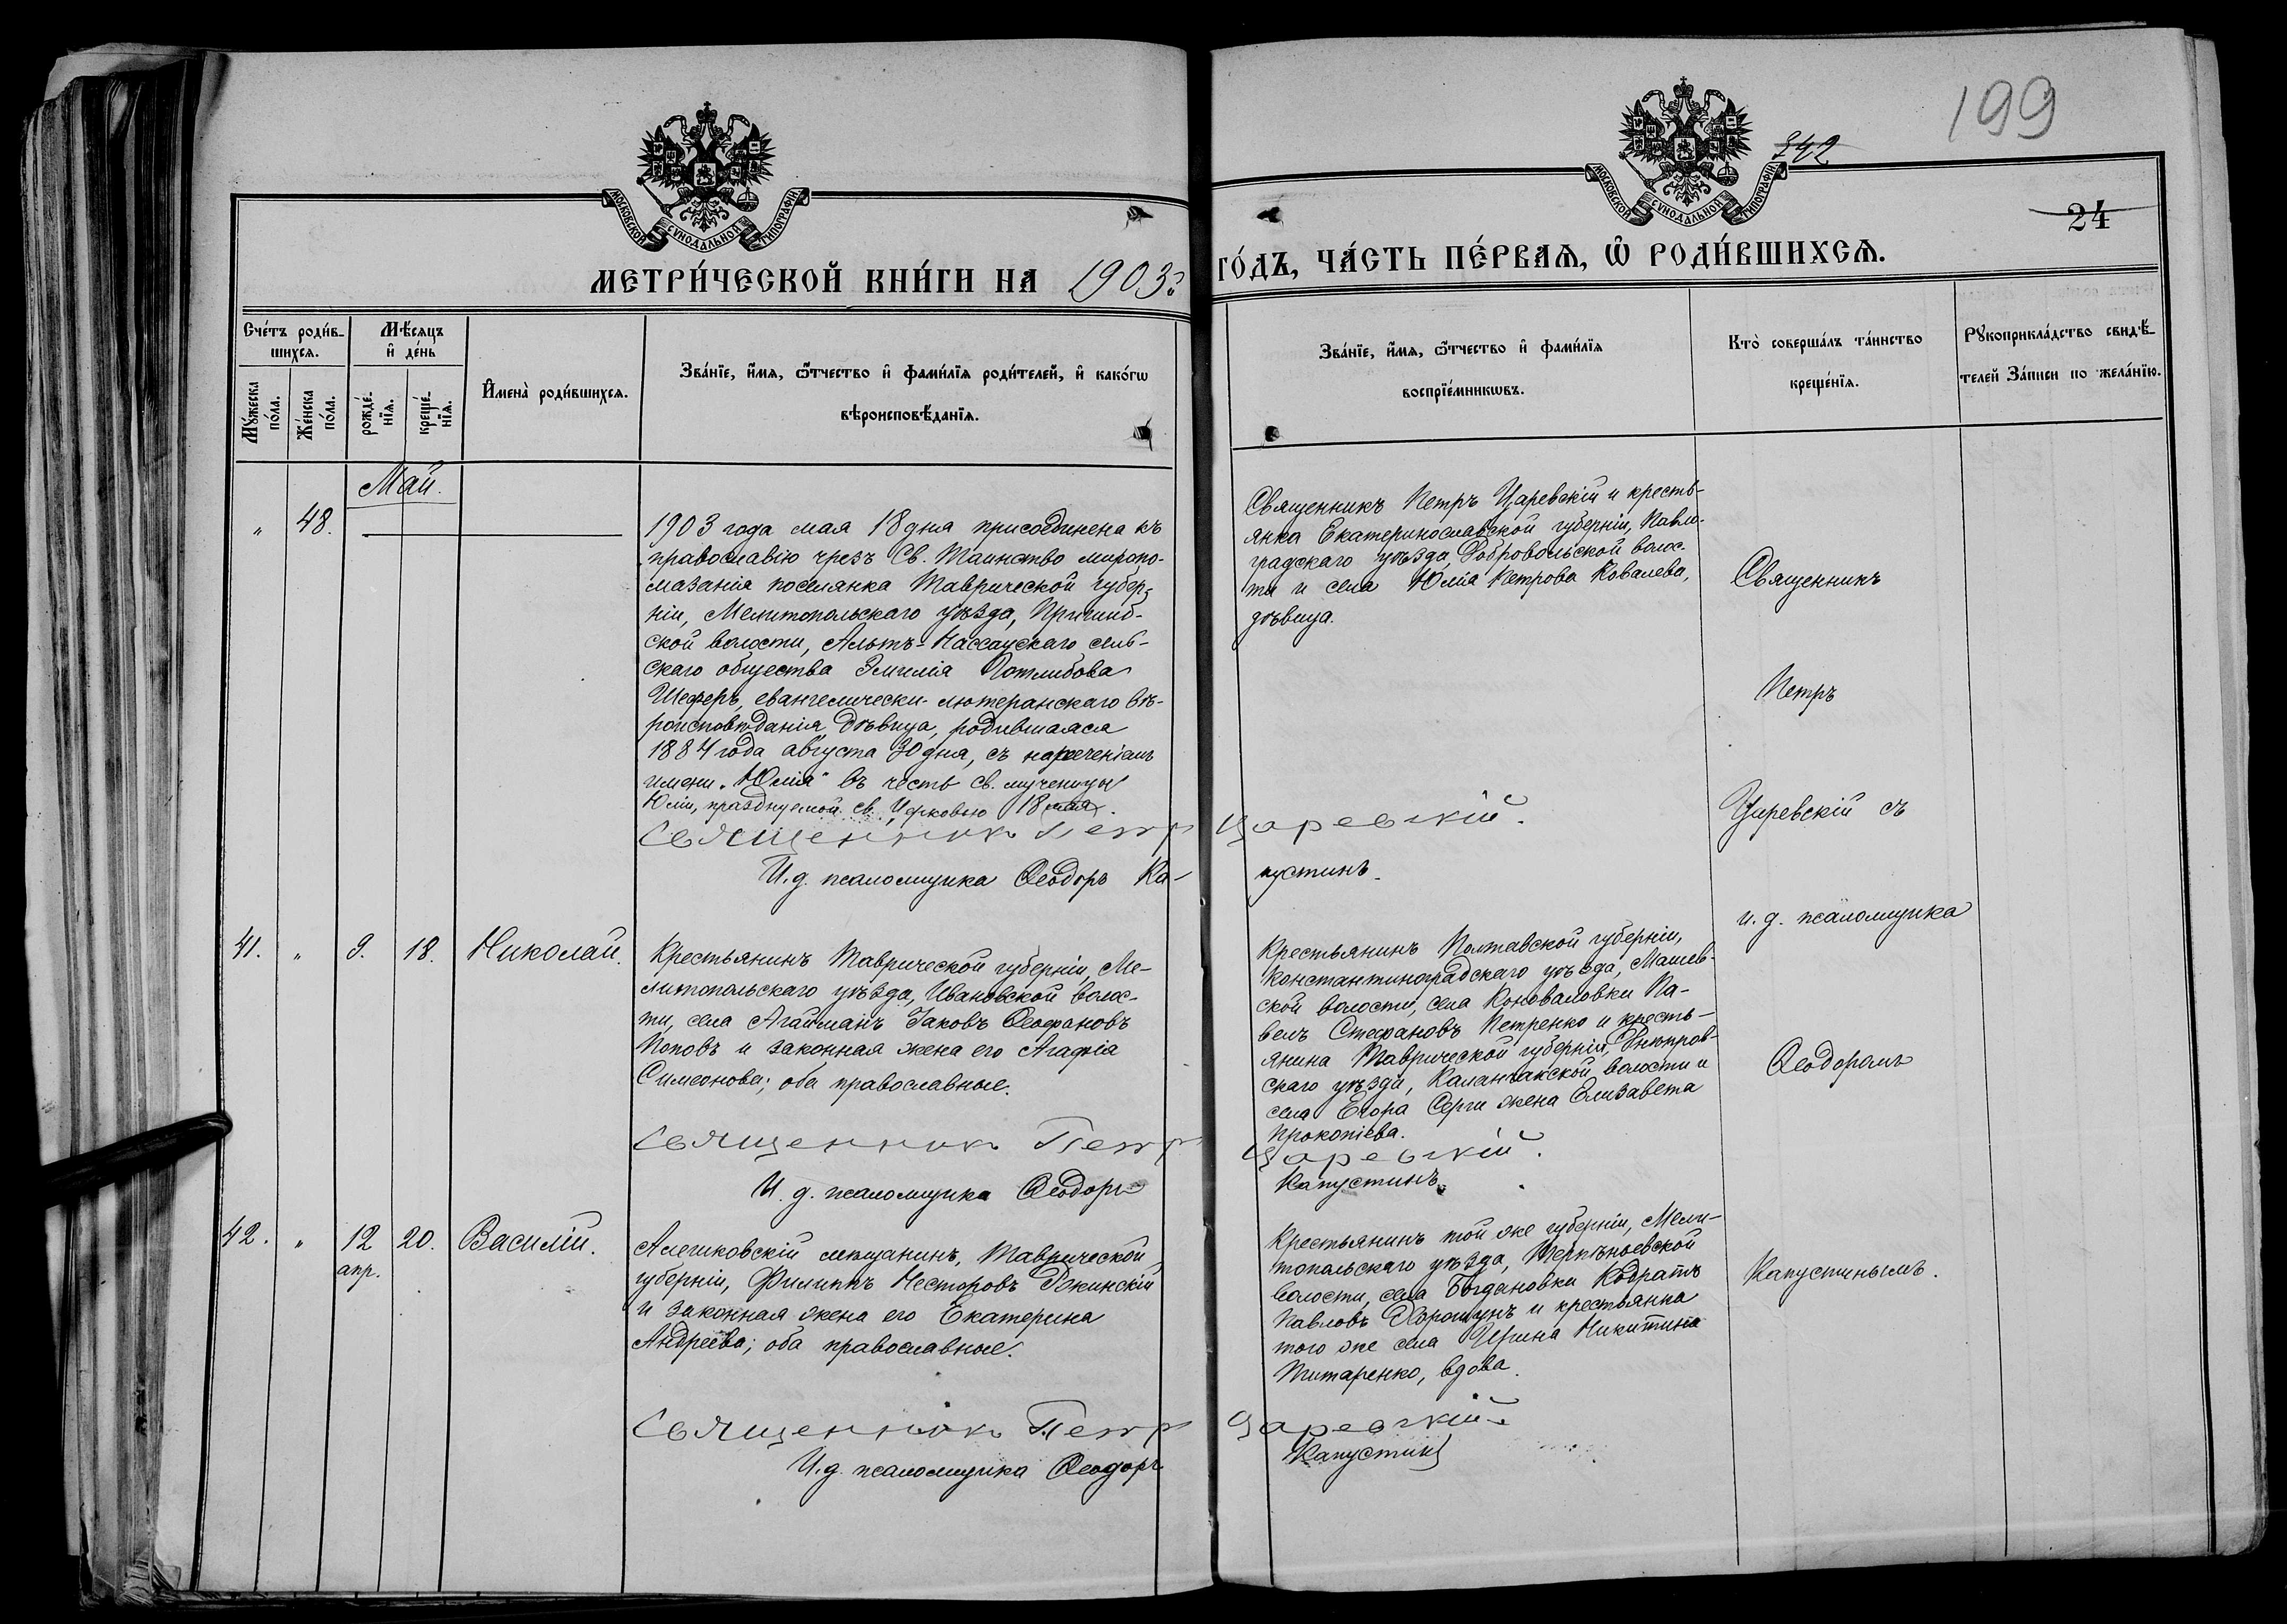 199
242
24
МОСКОВСКОЙ СѴНОДАЛЬНОЙ ТИПОГРАФІИ
МОСКОВСКОЙ СѴНОДАЛЬНОЙ ТИПОГРАФІИ
МЕТРИ́ЧЕСКОЙ КНИ́ГИ НА 1903г.
ГО́ДЪ, ЧА́СТЬ ПЕ́РВАѦ, Ѽ РОДИ́ВШИХСѦ.
Сче́тъ роди́в-
шихсѧ.
Мꙋ́жеска по́ла.
Же́нска по́ла.
Мѣ́сѧцъ
и҆ де́нь
рожде́-
нїѧ.
креще́-
нїѧ.
И҆мена̀ роди́вшихсѧ.
Зва́нїе, и҆́мѧ, ѻ҆́тчество и҆ фами́лїѧ роди́телей, и҆ како́гѡ
вѣроисповѣ́данїѧ.
Зва́нїе, и҆́мѧ, ѻ҆́тчество и҆ фами́лїѧ
воспрїе́мникѡвъ.
Кто̀ соверша́лъ та́инство
креще́нїѧ.
Рꙋкоприкла́дство свидѣ́-
телей За́писи по жела́нїю.
Май.
„ 48.
1903 года мая 18 дня присоединена къ
православію чрезъ Св. Таинство миропо-
мазанія поселянка Таврической губер-
ніи, Мелитопольскаго уѣзда, Пришиб-
ской волости, Альтъ-Нассаускаго сель-
скаго общества Эмилія Готлибова
Шеферъ, евангелически-лютеранскаго вѣ-
роисповѣданія, дѣвица, родившаяся
1884 года августа 30 дня, съ нареченіемъ
имени „Юлія" въ честь св. мученицы
Юліи, празднуемой св. Церковью 18 мая.
Священникъ Петръ Царевскій.
И. д. псаломщика Ѳеодоръ Ка-
пустинъ.
Священникъ Петръ Царевскій и кресть-
янка Екатеринославской губерніи, Павло-
градскаго уѣзда, Добровольской волос-
ти и села Юлія Петрова Ковалева,
дѣвица.
Священникъ
Петръ
Царевскій съ
и. д. псаломщика
Ѳеодоромъ
Капустинымъ.
41. „ 9. 18. Николай.
Крестьянинъ Таврической губерніи, Ме-
литопольскаго уѣзда, Ивановской волос-
ти, села Агайманъ Іаковъ Ѳеофановъ
Поповъ и законная жена его Агафія
Симеонова; оба православные.
Священникъ Петръ Царевскій.
И. д. псаломщика Ѳеодоръ Капустинъ.
Крестьянинъ Полтавской губерніи,
Константиноградскаго уѣзда, Машев-
ской волости, села Коноваловки Па-
велъ Стефановъ Петренко и кресть-
янина Таврической губерніи, Днѣпров-
скаго уѣзда, Каланчакской волости и
села Егора Серги жена Елизавета
Прокопіева.
42. „ 12 апр. 20. Василій.
Алешковскій мѣщанинъ, Таврической
губерніи, Филиппъ Несторовъ
и законная жена его Екатерина
Андреева; оба православные.
Священникъ Петръ Царевскій.
И. д. псаломщика Ѳеодоръ Капустинъ
Крестьянинъ той же губерніи, Мели-
топольскаго уѣзда, Терпѣньевской
волости, села Богдановки Кодратъ
Павловъ и крестьянка
того же села Ирина Никитина
Титаренко, вдова.